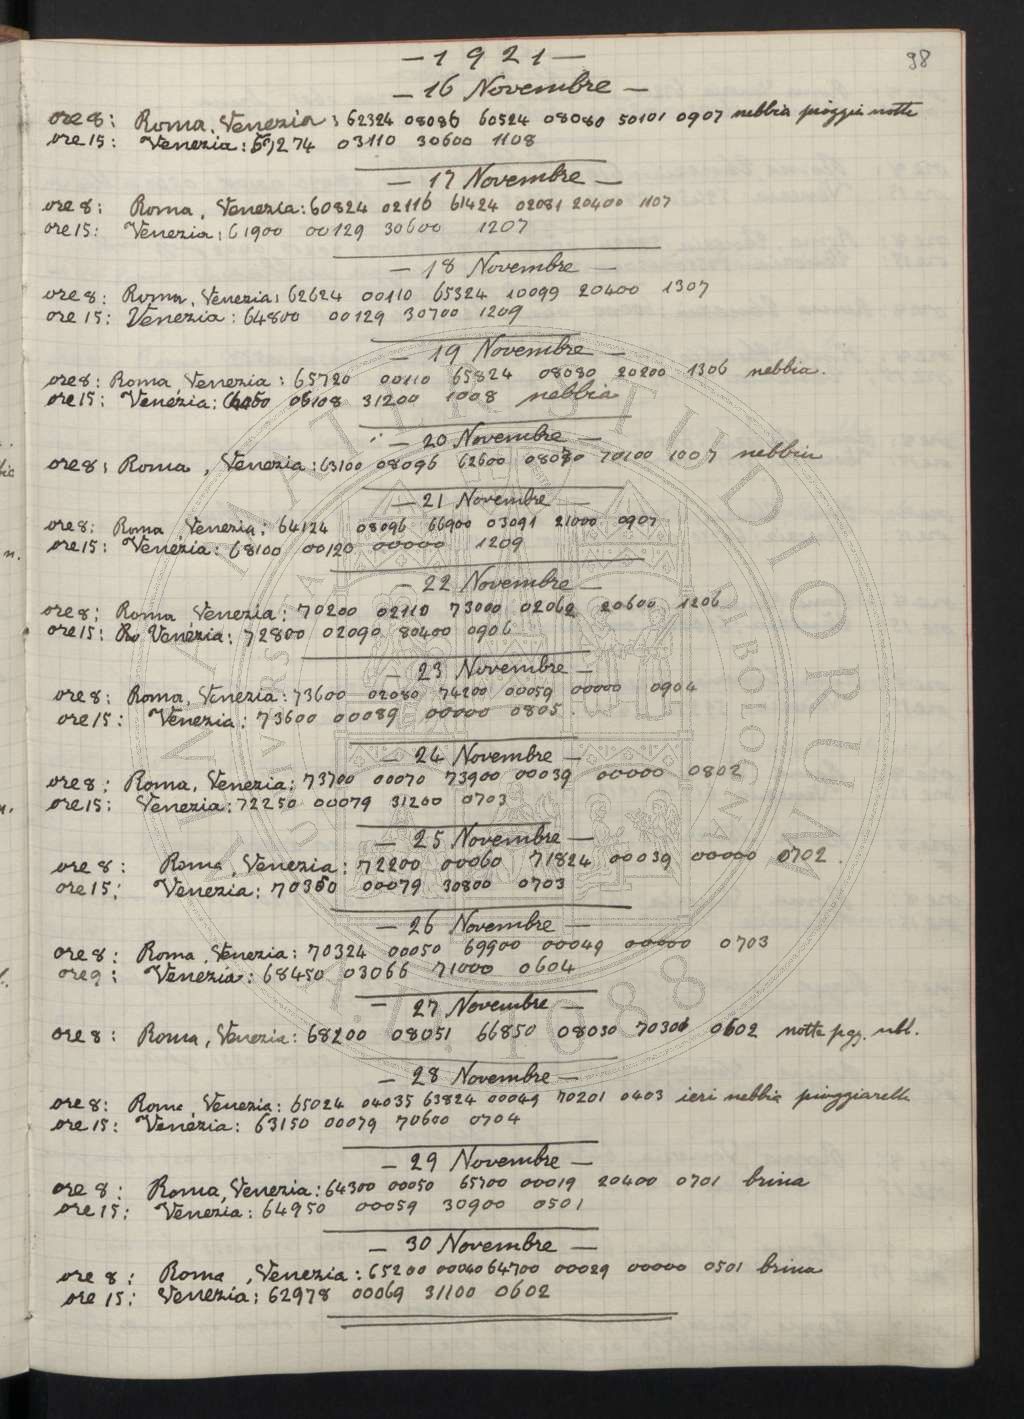 98
— 1 9 2 1 —
— 16 Novembre —
ore 8: Roma, Venezia: 62324 08086 60524 08080 50101 0907 nebbia pioggia notte
ore 15: Venezia: 03110 30600 1108
— 17 Novembre —
ore 8: Roma, Venezia: 60824 02116 61424 02081 20400 1107
ore 15: Venezia: 61900 00129 30600 1207
— 18 Novembre —
ore 8: Roma, Venezia: 62624 00110 65324 10099 20400 1307
ore 15: Venezia: 64800 00129 30700 1209
— 19 Novembre —
ore 8: Roma, Venezia: 65720 00110 65824 08080 20200 1306 nebbia.
ore 15: Venezia: 31200 1008 nebbia
— 20 Novembre —
ore 8: Roma, Venezia: 63100 08096 62600 70100 1007 nebbia
— 21 Novembre —
ore 8: Roma, Venezia: 64124 08096 66900 03091 21000 0907
ore 15: Venezia: 68100 00120 00000 1209
— 22 Novembre —
ore 8: Roma, Venezia: 70200 02110 73000 02062 20600 1206
ore 15: Ro Venezia: 72800 02090 80400 0906
— 23 Novembre —
ore 8: Roma, Venezia: 73600 02080 74200 00059 00000 0904
ore 15: Venezia: 73600 00089 00000 0805.
— 24 Novembre —
ore 8: Roma, Venezia: 73700 00070 73900 00039 00000 0802
ore 15: Venezia: 72250 00079 31200 0703
— 25 Novembre —
ore 8: Roma, Venezia: 72200 00060 71824 00039 00000 0702.
ore 15: Venezia: 70350 00079 30800 0703
— 26 Novembre —
ore 8: Roma, Venezia: 70324 00050 69900 00049 00000 0703
ore 9: Venezia: 68450 03066 71000 0604
— 27 Novembre —
ore 8: Roma, Venezia: 68200 08051 66850 08030 70306 0602 notte pgg. nbb.
— 28 Novembre —
ore 8: Roma, Venezia: 65024 04035 63824 00049 70201 0403 ieri nebbia pioggiarella
ore 15: Venezia: 63150 00079 70600 0704
— 29 Novembre —
ore 8: Roma, Venezia: 64300 00050 65700 00019 20400 0701 brina
ore 15: Venezia: 64950 00059 30900 0501
— 30 Novembre —
ore 8: Roma, Venezia: 65200 00040 64700 00029 00000 0501 brina
ore 15: Venezia: 62978 00069 31100 0602
ALMA MATER STUDIORUM
UNIVERSITÀ DI BOLOGNA
A.D. 1088